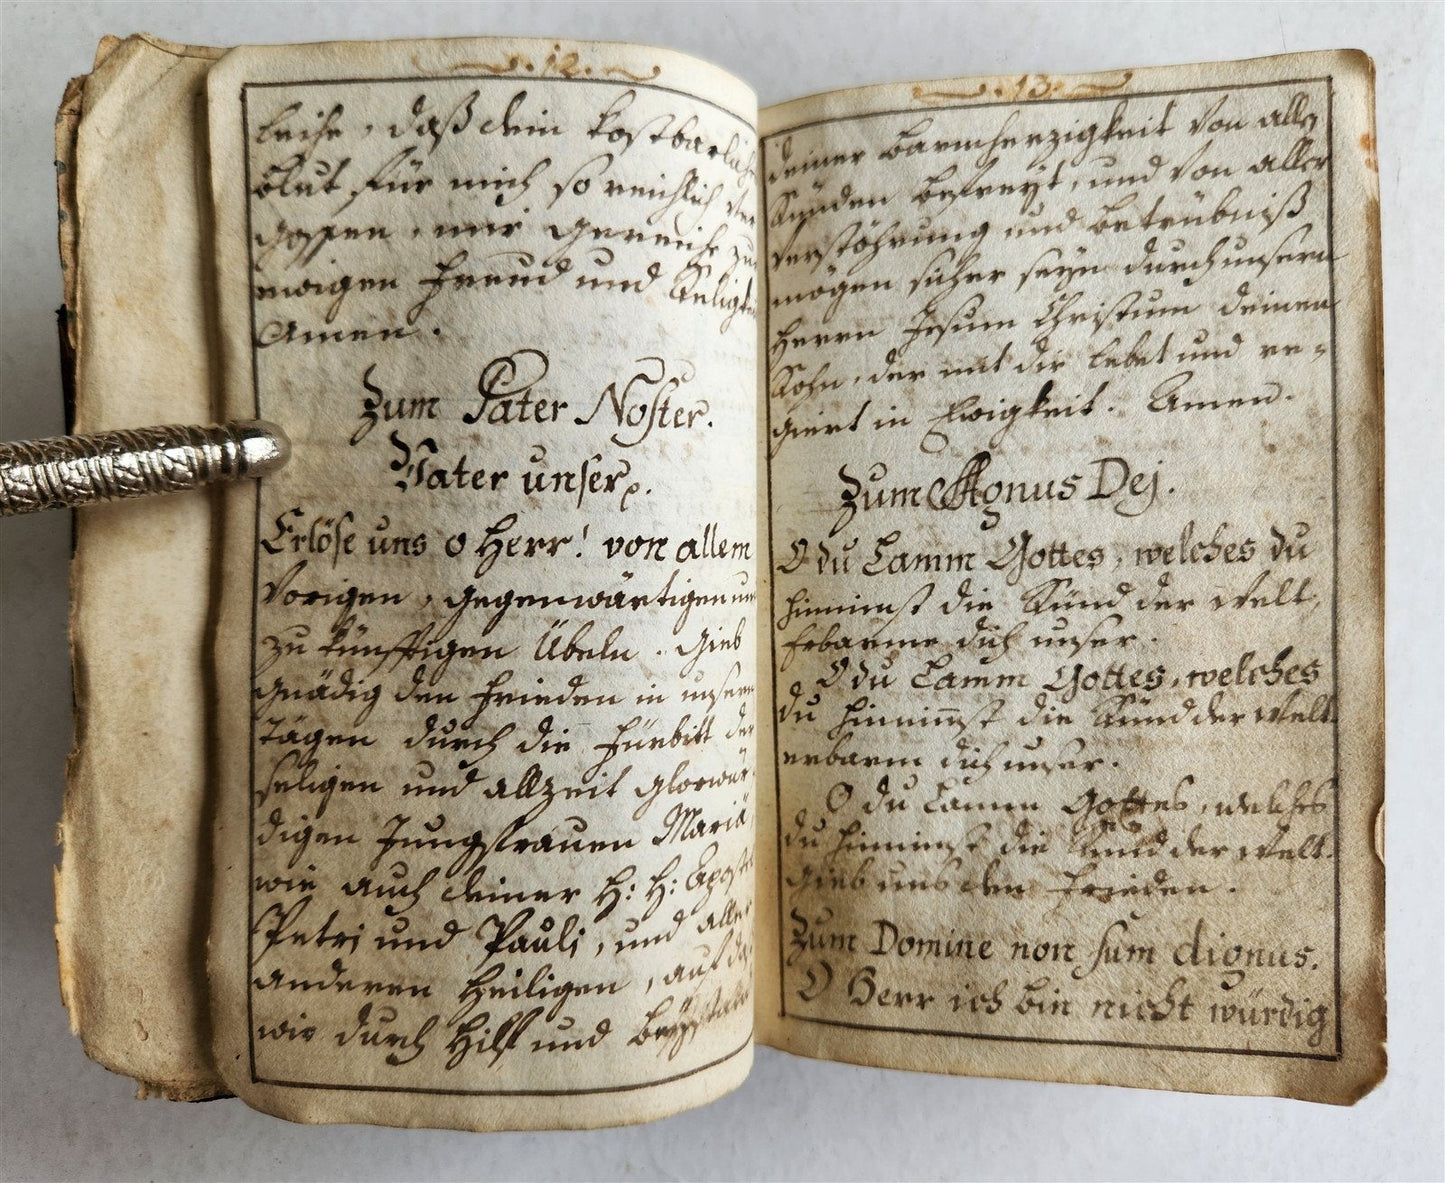 . 12 .
leihe, daß dein kostbarliches
blut für mich so reichlich ver
gossen, mir gereiche zur
ewigen Freud und Seligkeit
Amen.
Zum Pater Noster.
Vater unser
Erlöse uns o Herr! von allem
vorigen, gegenwärtigen und
zu künfftigen Übeln. Gieb
gnädig den Frieden in unsern
Tägen durch die Fürbitt der
seligen und allzeit glorwür
digen Jungfrauen Mariä,
wie auch deiner H: H: Apostel
Petri und Pauli, und aller
anderen Heiligen, auf daß
wir durch Hilff und Beystand
. 13 .
deiner Barmherzigkeit von allen
Sünden befreyt, und von aller
Verstöhrung und betrübniß
mögen sicher seyn durch unsern
Herrn Jesum Christum deinen
Sohn, der mit dir lebet und re=
giert in Ewigkeit. Amen.
Zum Agnus Dej.
O du Lamm Gottes, welches du
hinnimst die Sünd der Welt,
Erbarme dich unser.
O du Lamm Gottes, welches
du hinnim̄st die Sünd der Welt.
erbarm dich unser.
O du Lamm Gottes, welches
du hinnimst die Sünd der Welt.
Gieb uns den Frieden.
Zum Domine non sum dignus.
O Herr ich bin nicht würdig